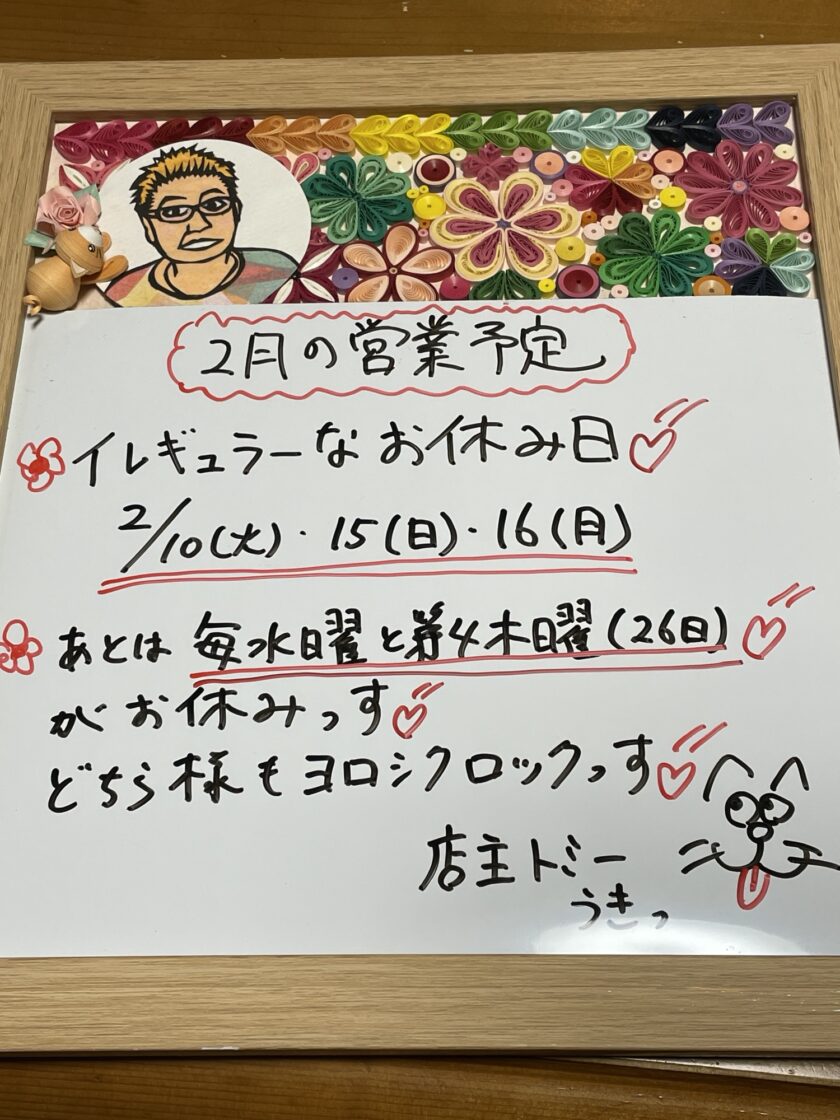 2月の営業予定
イレギュラーなお休み日
2/10(火)・15(日)・16(月)
あとは毎水曜と第4木曜(26日)
がお休みっす
どちら様もヨロシクロックっす
店主トミー
うきっ